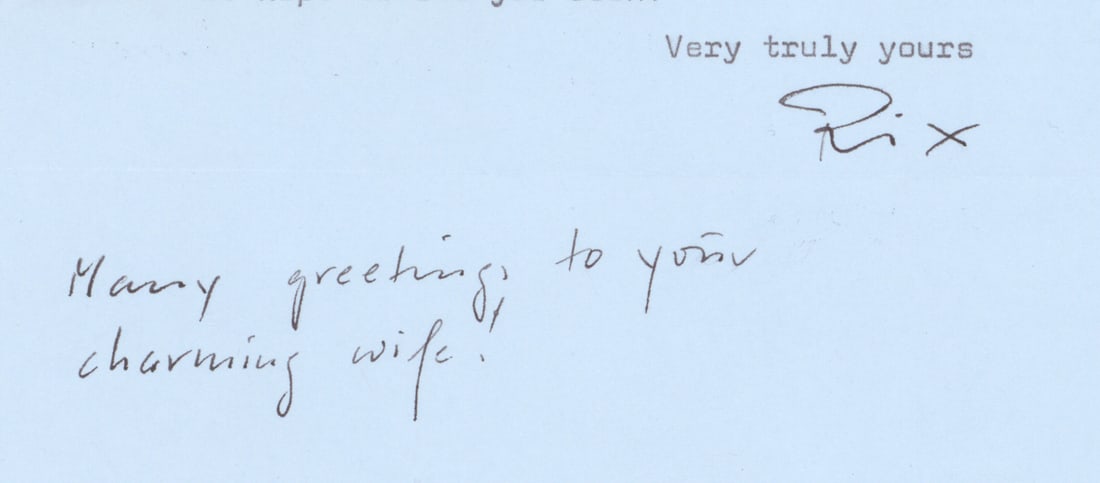 Very truly yours
Rix
Many greetings to your
charming wife!